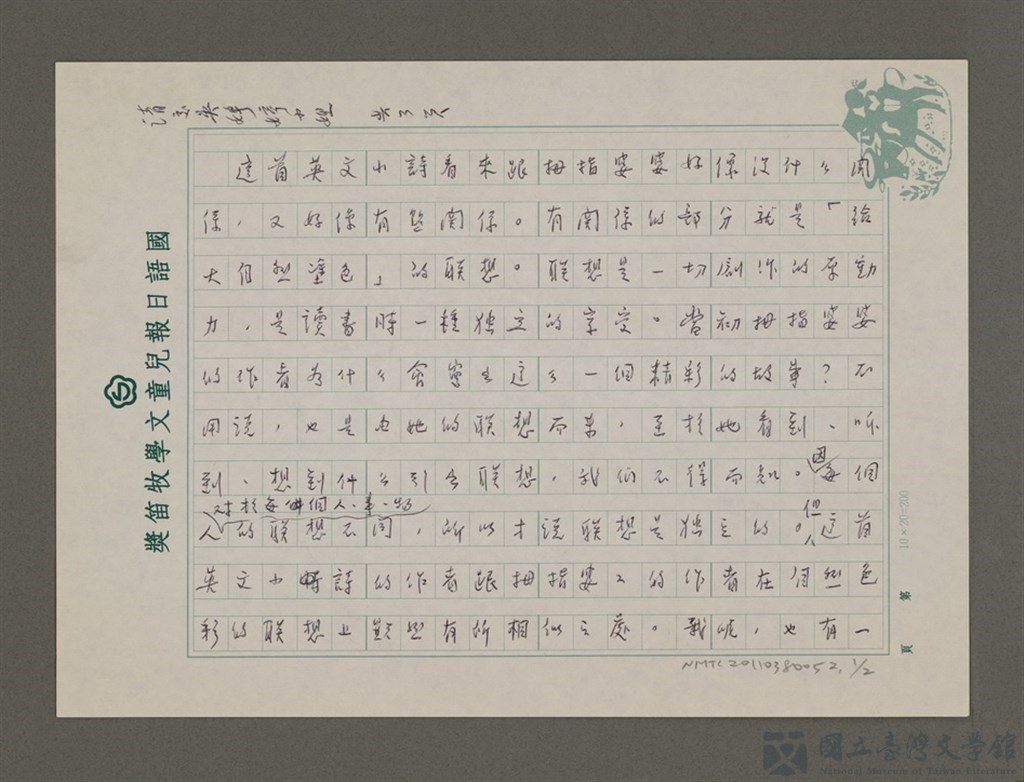 這首英文小詩看來跟拇指婆婆好像沒什么関
係，又好像有些関係。有関係的部分就是「給
大自然塗色」的联想。联想是一切創作的原動
力，是讀書時一種独立的享受。當初拇指婆婆
的作者為什么會寫出這么一個精彩的故事？不
用說，也是由她的联想而来，至於她看到、听
到、想到什么引出联想，我们不得而知。因每個
人對於每個人、事、物的联想不同，所以才說联想是独立的。但這首
英文小詩的作者跟拇指婆〻的作者在自然色
彩的联想上竟然有所相似之處。我呢，也有一
國語日報兒童文學牧笛獎
10×20=200
第 頁
NMTL20110380052, 1/2
國立臺灣文學館
National Museum of Taiwan Literature